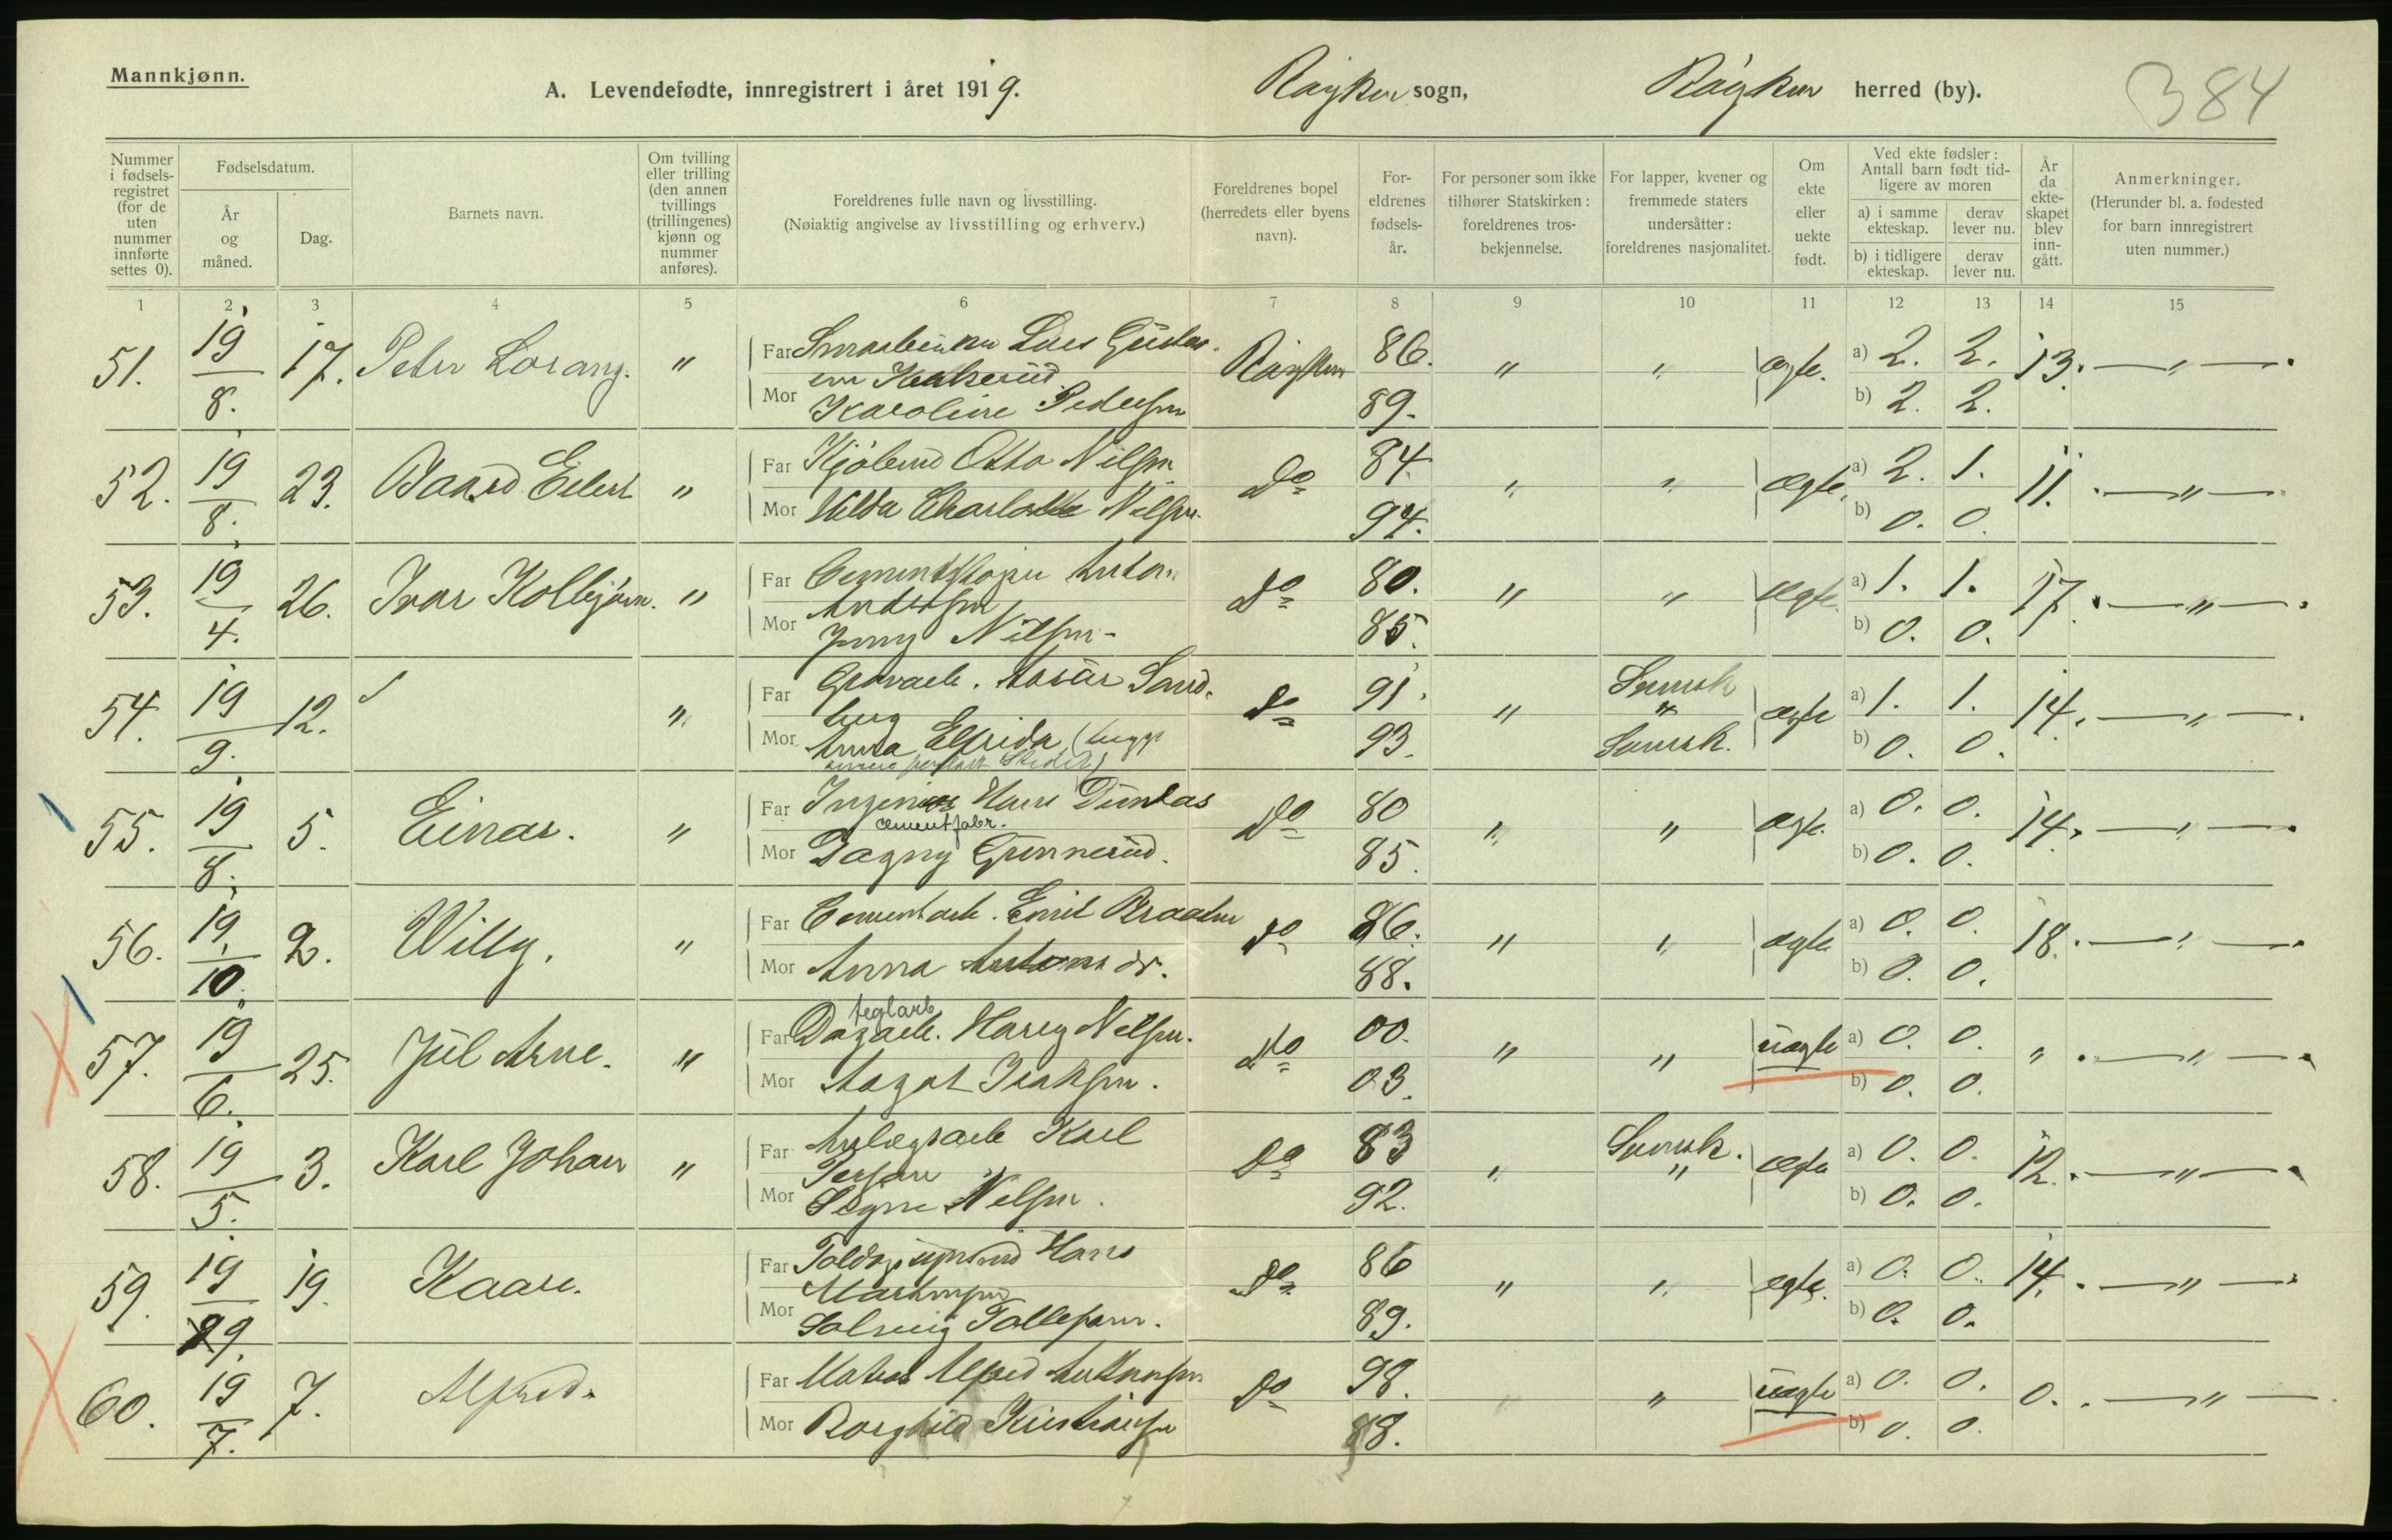 Mannkjønn.
A. Levendefødte, innregistrert i året 1919. Røyken sogn, Røyken herred (by). 384
Nummer i fødselsregistret (for de uten nummer innførte settes 0).
Fødselsdatum.
År og måned.
Dag.
Barnets navn.
Om tvilling eller trilling (den annen tvillings (trillingenes) kjønn og nummer anføres).
Foreldrenes fulle navn og livsstilling.
(Nøiaktig angivelse av livsstilling og erhverv.)
Foreldrenes bopel (herredets eller byens navn).
Foreldrenes fødselsår.
For personer som ikke tilhører Statskirken: foreldrenes trosbekjennelse.
For lapper, kvener og fremmede staters undersåtter: foreldrenes nasjonalitet.
Om ekte eller uekte født.
Ved ekte fødsler: Antall barn født tidligere av moren
a) i samme ekteskap. derav lever nu.
b) i tidligere ekteskap. derav lever nu.
År da ekteskapet blev inngått.
Anmerkninger.
(Herunder bl. a. fødested for barn innregistrert uten nummer.)
1 2 3 4 5 6 7 8 9 10 11 12 13 14 15
51. 19/8. 17. Peter Lorang. " Far Lars Gustav Røyken 86. " " ægte. a) 2. 2. 13. — " —
Mor Karoline Pedersen 89. b) 2. 2.
52. 19/8. 23. Baard Eilert " Far Otto Nilsen Do 84. " " ægte. a) 2. 1. 11. — " —
Mor Hilda Charlotte Nilsen. 94. b) 0. 0.
53. 19/4. 26. Ivar Kolbjørn. " Far Cementstøper Anton Do 80. " " ægte. a) 1. 1. 17. — " —
Andersen
Mor Jenny Nilsen. 85. b) 0. 0.
54. 19/9. 12. " Far Sandberg do 91. " Svensk " ægte a) 1. 1. 14. — " —
Mor Anna Elfrida 93. Svensk. b) 0. 0.
55. 19/8. 5. Einar. " Far Ingeniør Hans Dundas Do 80 " " ægte. a) 0. 0. 14. — " —
cementfabr.
Mor Dagny Grønnerud. 85. b) 0. 0.
56. 19/10. 2. Willy. " Far Cementarb. Emil Braaten do 86. " " ægte a) 0. 0. 18. — " —
Mor Anna Antonsdr. 88. b) 0. 0.
teglarb
57. 19/6. 25. Jul Arne. " Far Dagarb. Harry Nilsen. do 00. " " uægte a) 0. 0. " — " —
Mor Aagot Isaksen. 03. b) 0. 0.
58. 19/5. 3. Karl Johan " Far Anlægsarb Karl Do 83 " Svensk. " ægte a) 0. 0. 12. — " —
Person
Mor Signe Nilsen. 92. b) 0. 0.
59. 19/9. 19. Kaare. Far Hans Do 86 " " ægte. a) 0. 0. 14. — " —
Martinsen
Mor Solveig Tollefsen. 89. b) 0. 0.
60. 19/7. 7. Alfred. Far Matros Alfred Do 98. " " uægte a) 0. 0. 0. — " —
Mor Borghild Kristiansen 98. b) 0. 0.